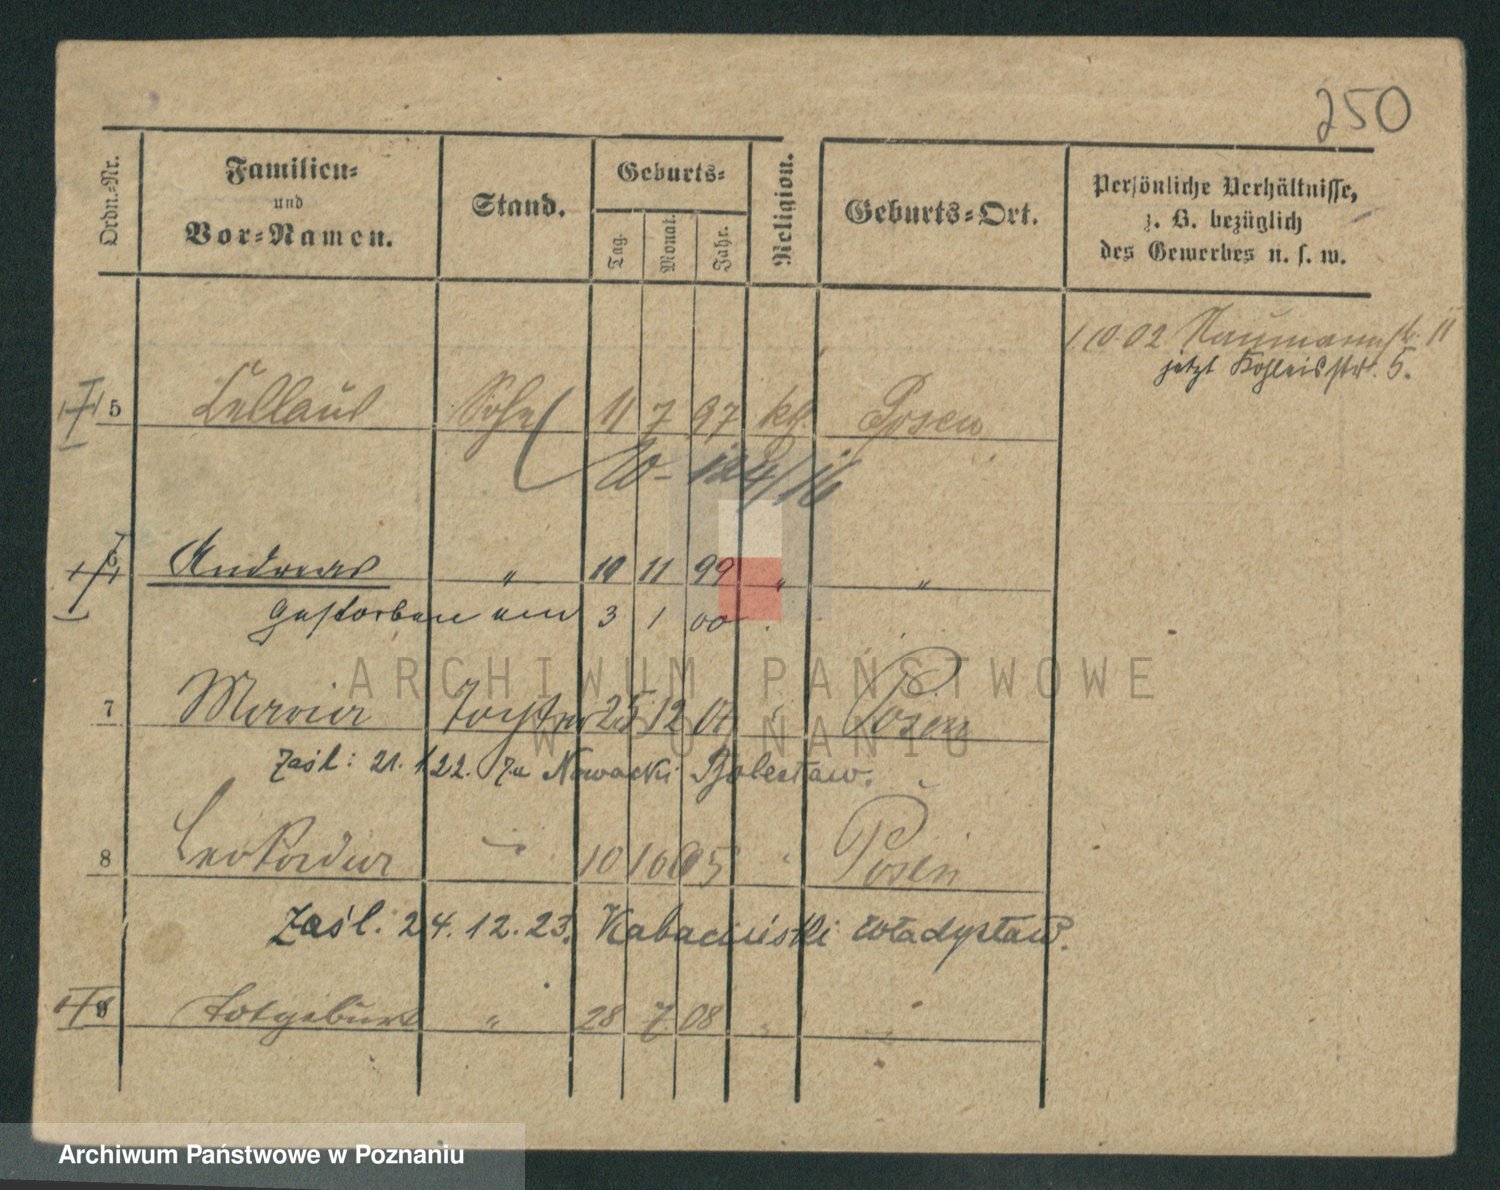 250
Ordn.-Nr.
Familien-
und
Vor-Namen.
Stand.
Geburts-
Tag.
Monat.
Jahr.
Religion.
Geburts-Ort.
Persönliche Verhältnisse,
z. B. bezüglich
des Gewerbes u. s. w.
1 10 02 Naumannstr. 11
jetzt Kohleisstr. 5.
5 Sohn 11 7 97 kth. Posen
6 Andreas " 10 11 99 " "
Gestorben am 3 1 00
7 Maria Tochter 25 12 01 " Posen
Zaśl: 21. 1 22. za Nowacki Bolesław.
8 Leokadia " 10 10 05 " Posen
Zaśl. 24. 12. 23. Kabaciński Władysław.
9 Totgeburt " 28 7 08 " "
ARCHIWUM PAŃSTWOWE
W POZNANIU
Archiwum Państwowe w Poznaniu